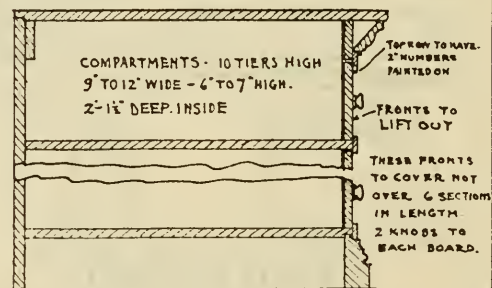 COMPARTMENTS - 10 TIERS HIGH
9" TO 12" WIDE - 6" TO 7" HIGH.
2'-1½" DEEP. INSIDE
TOP ROW TO HAVE
2" NUMBERS
PAINTED ON
FRONTS TO
LIFT OUT
THESE FRONTS
TO COVER NOT
OVER 6 SECTIONS
IN LENGTH
2 KNOBS TO
EACH BOARD.